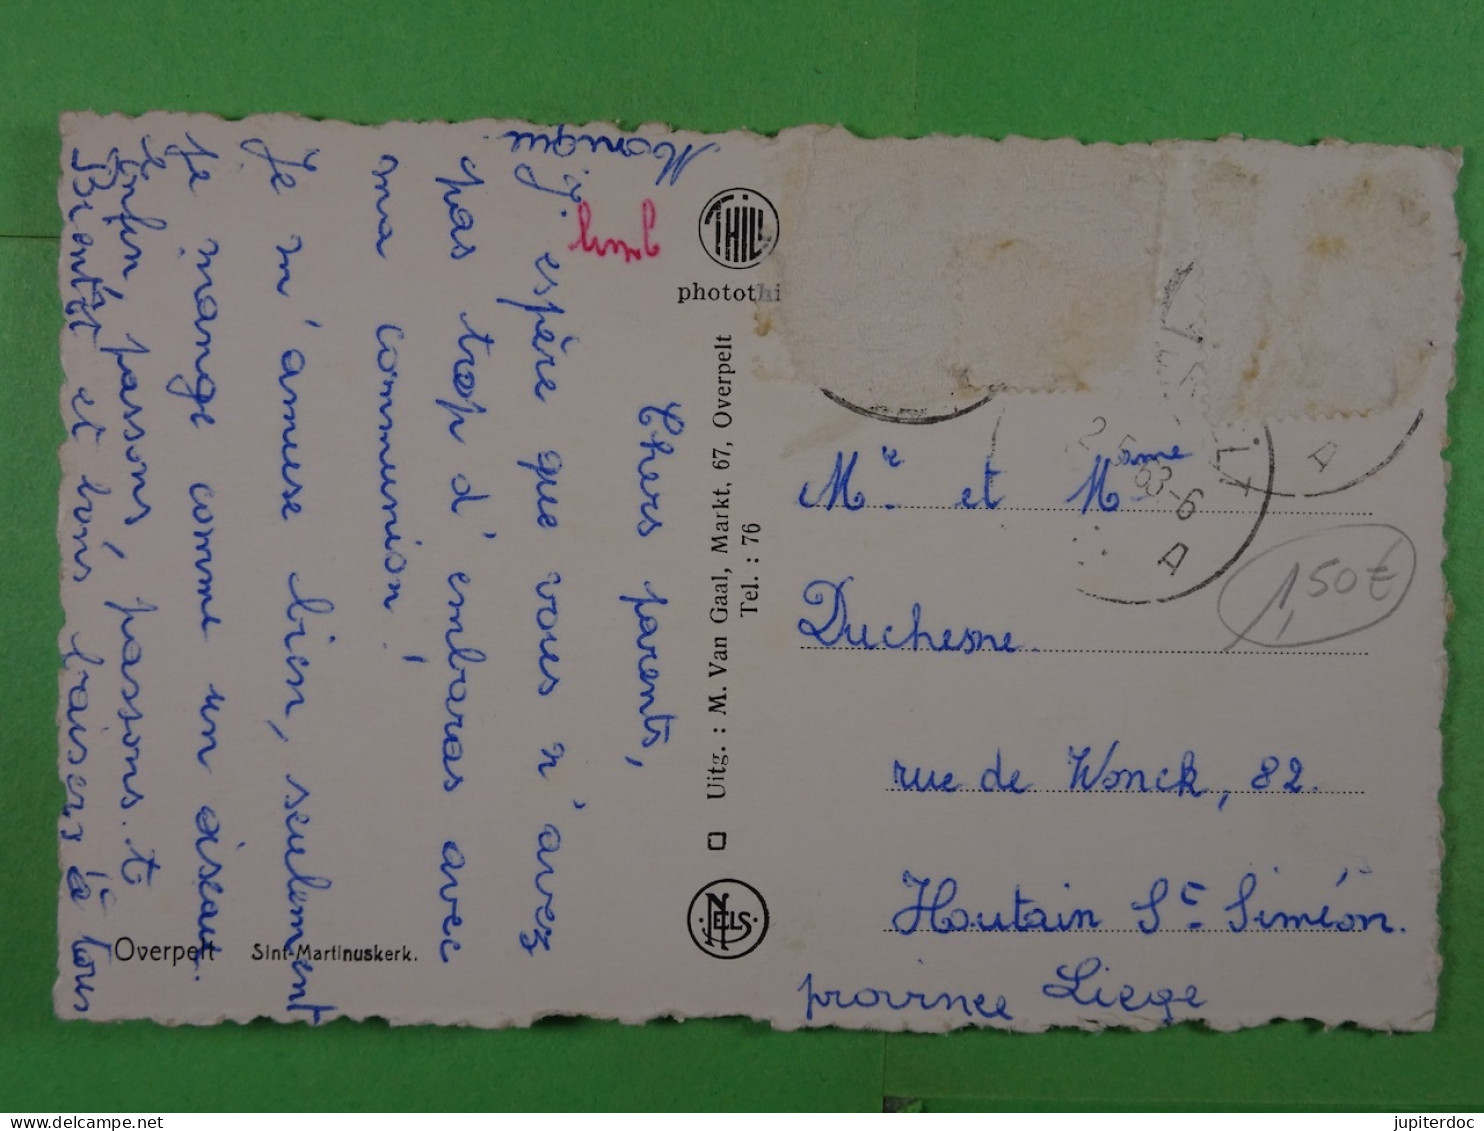 Chers parents,
J'espère que vous n'avez
pas trop d'embaras avec
ma communion!
Je m'amuse bien, seulement
je mange comme un oiseau.
enfin, passons, passons.
Bientôt et bons baisers à tous
Monique.
THILL
photothi
Uitg. : M. Van Gaal, Markt, 67, Overpelt
Tel. : 76
NELS
Overpelt Sint-Martinuskerk.
Mr. et Mme
Duchesne.
rue de Wonck, 82.
Houtain St Siméon.
province Liege
63-6
A
A
1,50€
delcampe.net
jupiterdoc